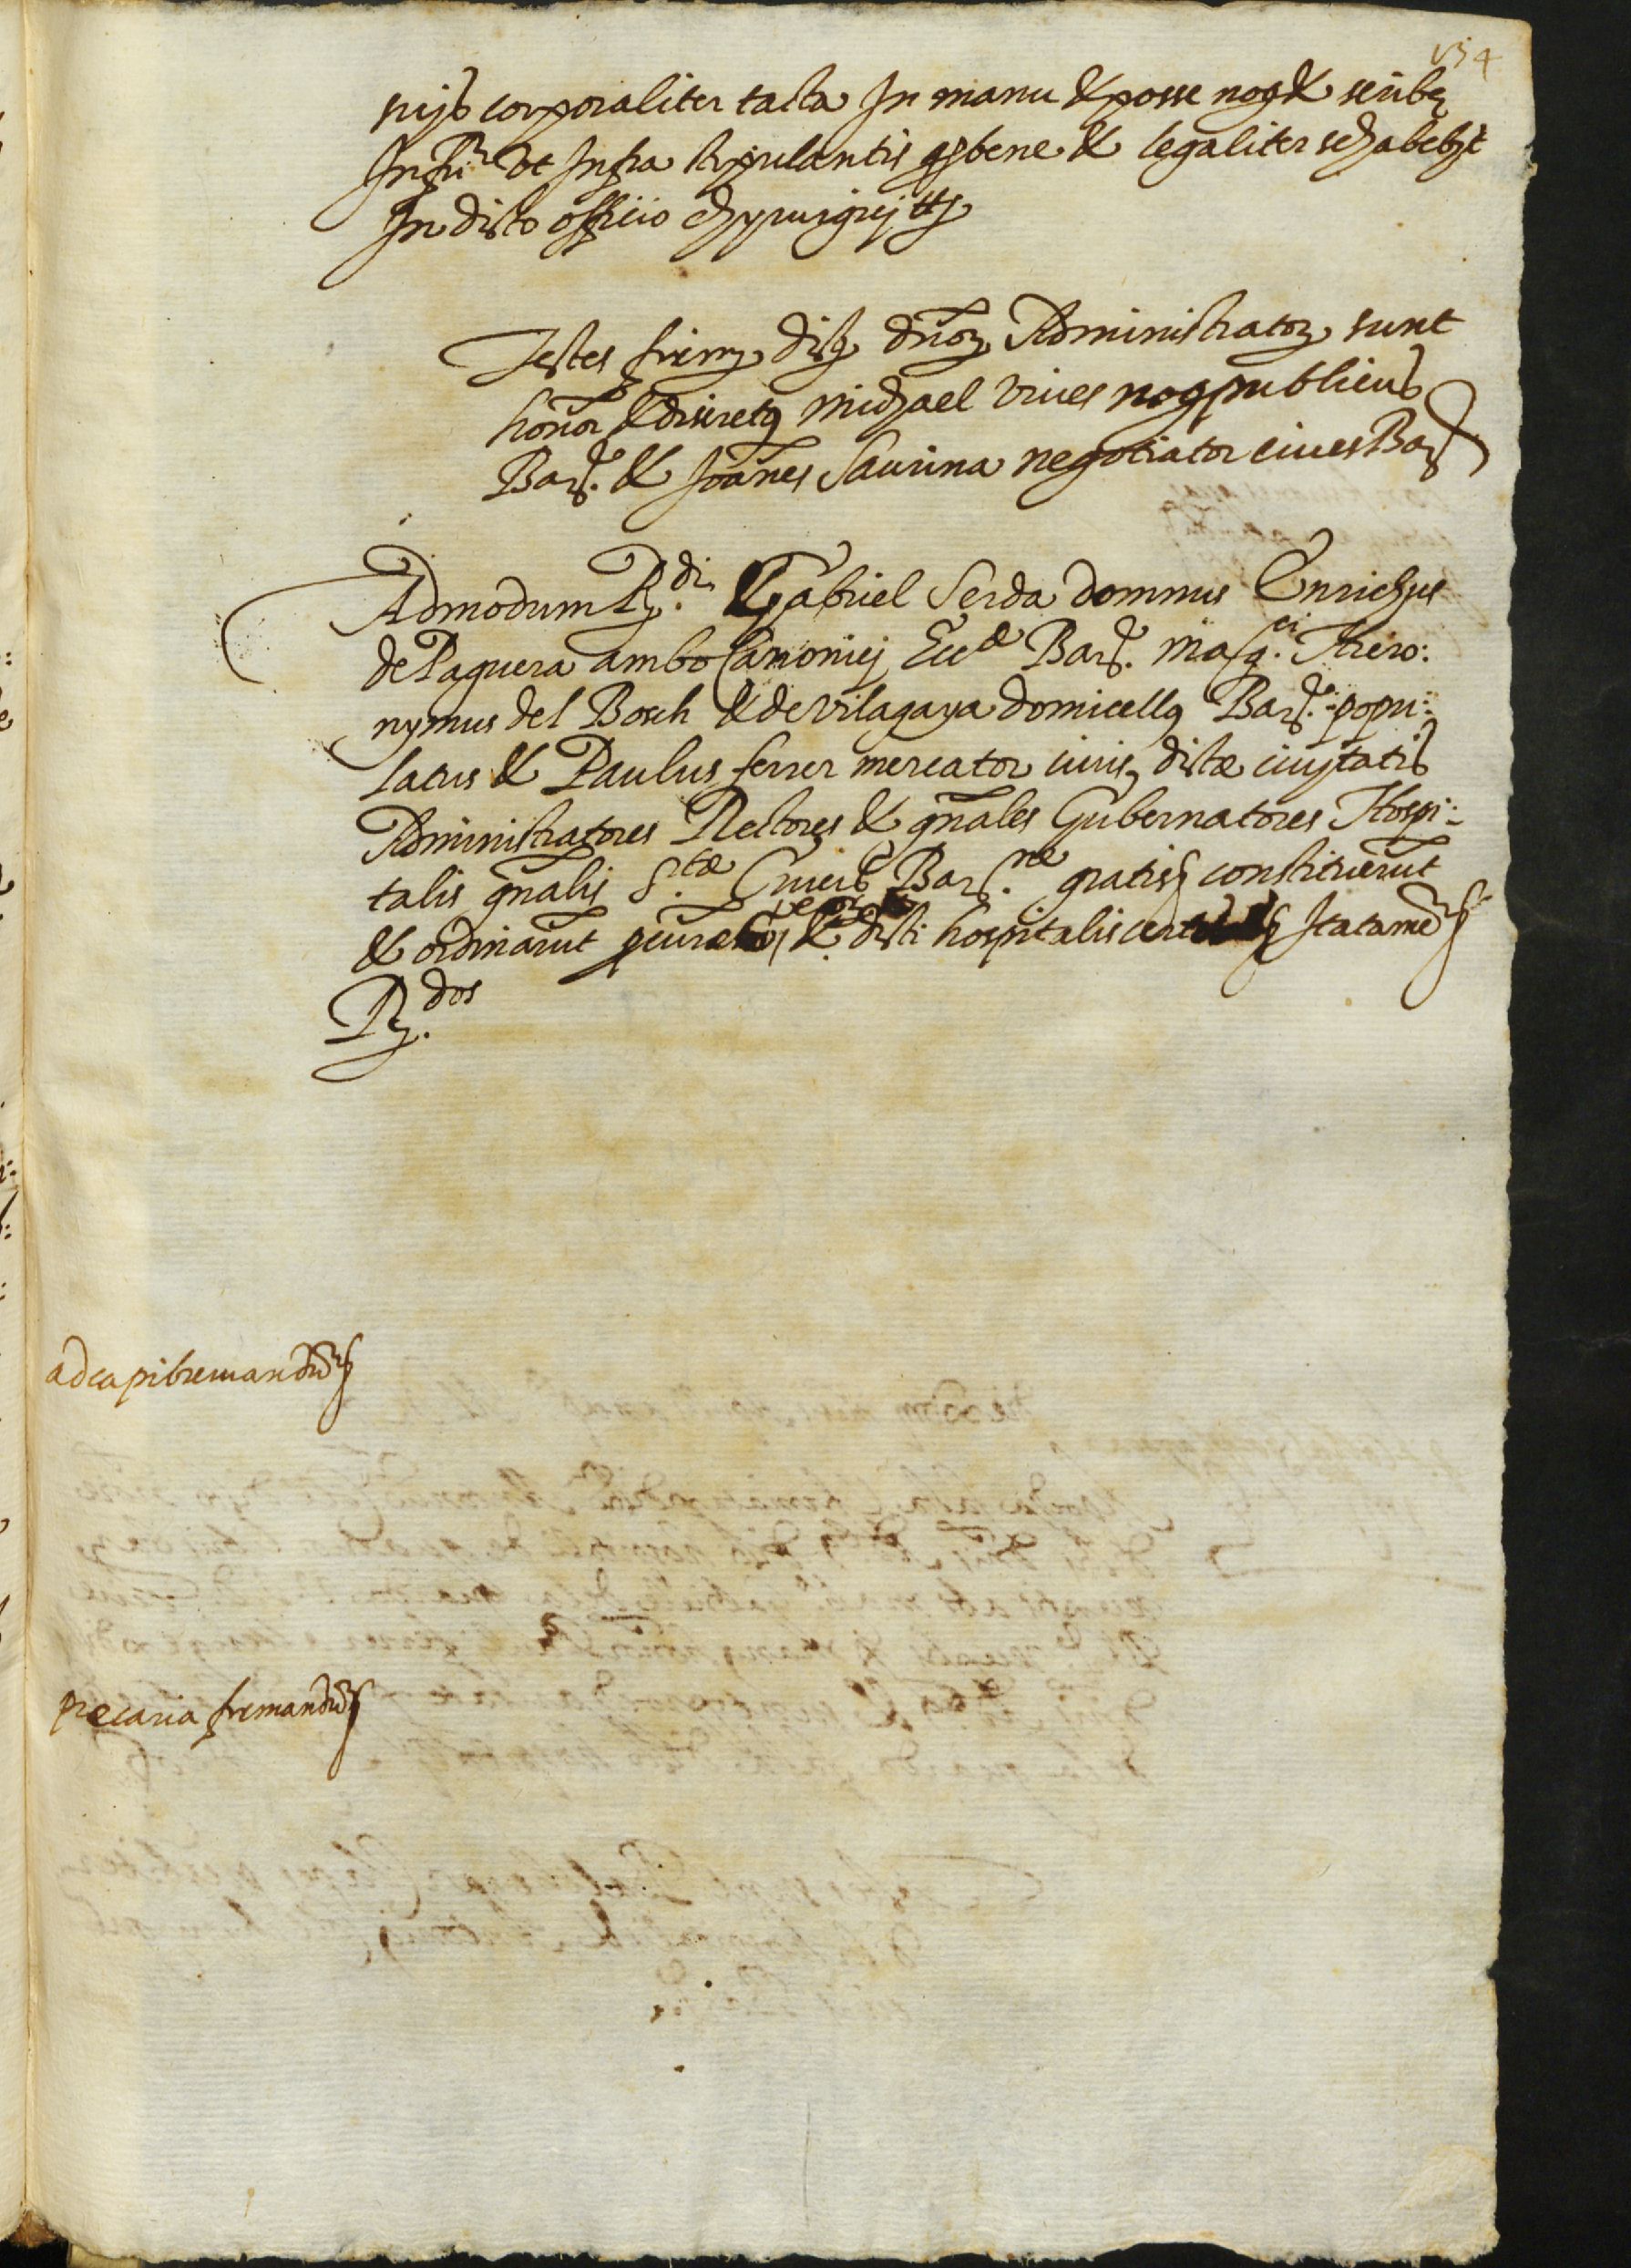 134
suis corporaliter tacta In manu & posse not & scribe
Infri et Infra stipulantis q bene & legaliter se habebit
In dicto officio chyrurgiej etc
Testes firme dictor dnor Administrator sunt
honor & discretus Michael Viues not publicus
Bar. & Joanes Saurina negotiator ciues Bar
Admodum R.di Gabriel Serda dominus Enrichus
de Paguera ambo Canoniej Eccle Bar. mag.ci Hiero:
nymus del Bosch & de Vilagaya domicellus Bar. popu:
latus & Paulus ferrer mercator ciuis dictæ ciuitatis
Administratores Rectores & gñales Gubernatores Hospi:
talis gñalis S.tæ Crucis Bar.næ gratis constituerut
& ordinarut & dicti hospitalis Ita tame
R.dos
ad capibreuiandu
precaria firmandu